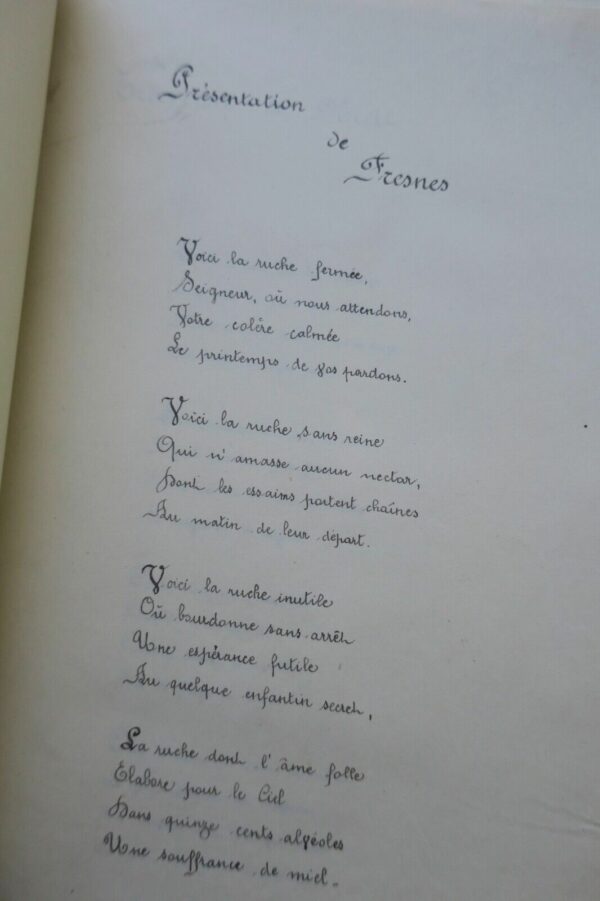 Présentation
de
Fresnes
Voici la ruche fermée,
Seigneur, où nous attendons,
Votre colère calmée
Le printemps de vos pardons.
Voici la ruche sans reine
Qui n'amasse aucun nectar,
Dont les essaims partent chaînes
Au matin de leur départ.
Voici la ruche inutile
Où bourdonne sans arrêt
Une espérance futile
Au quelque enfantin secret,
La ruche dont l'âme folle
Elabore pour le Ciel
Dans quinze cents alvéoles
Une souffrance de miel.